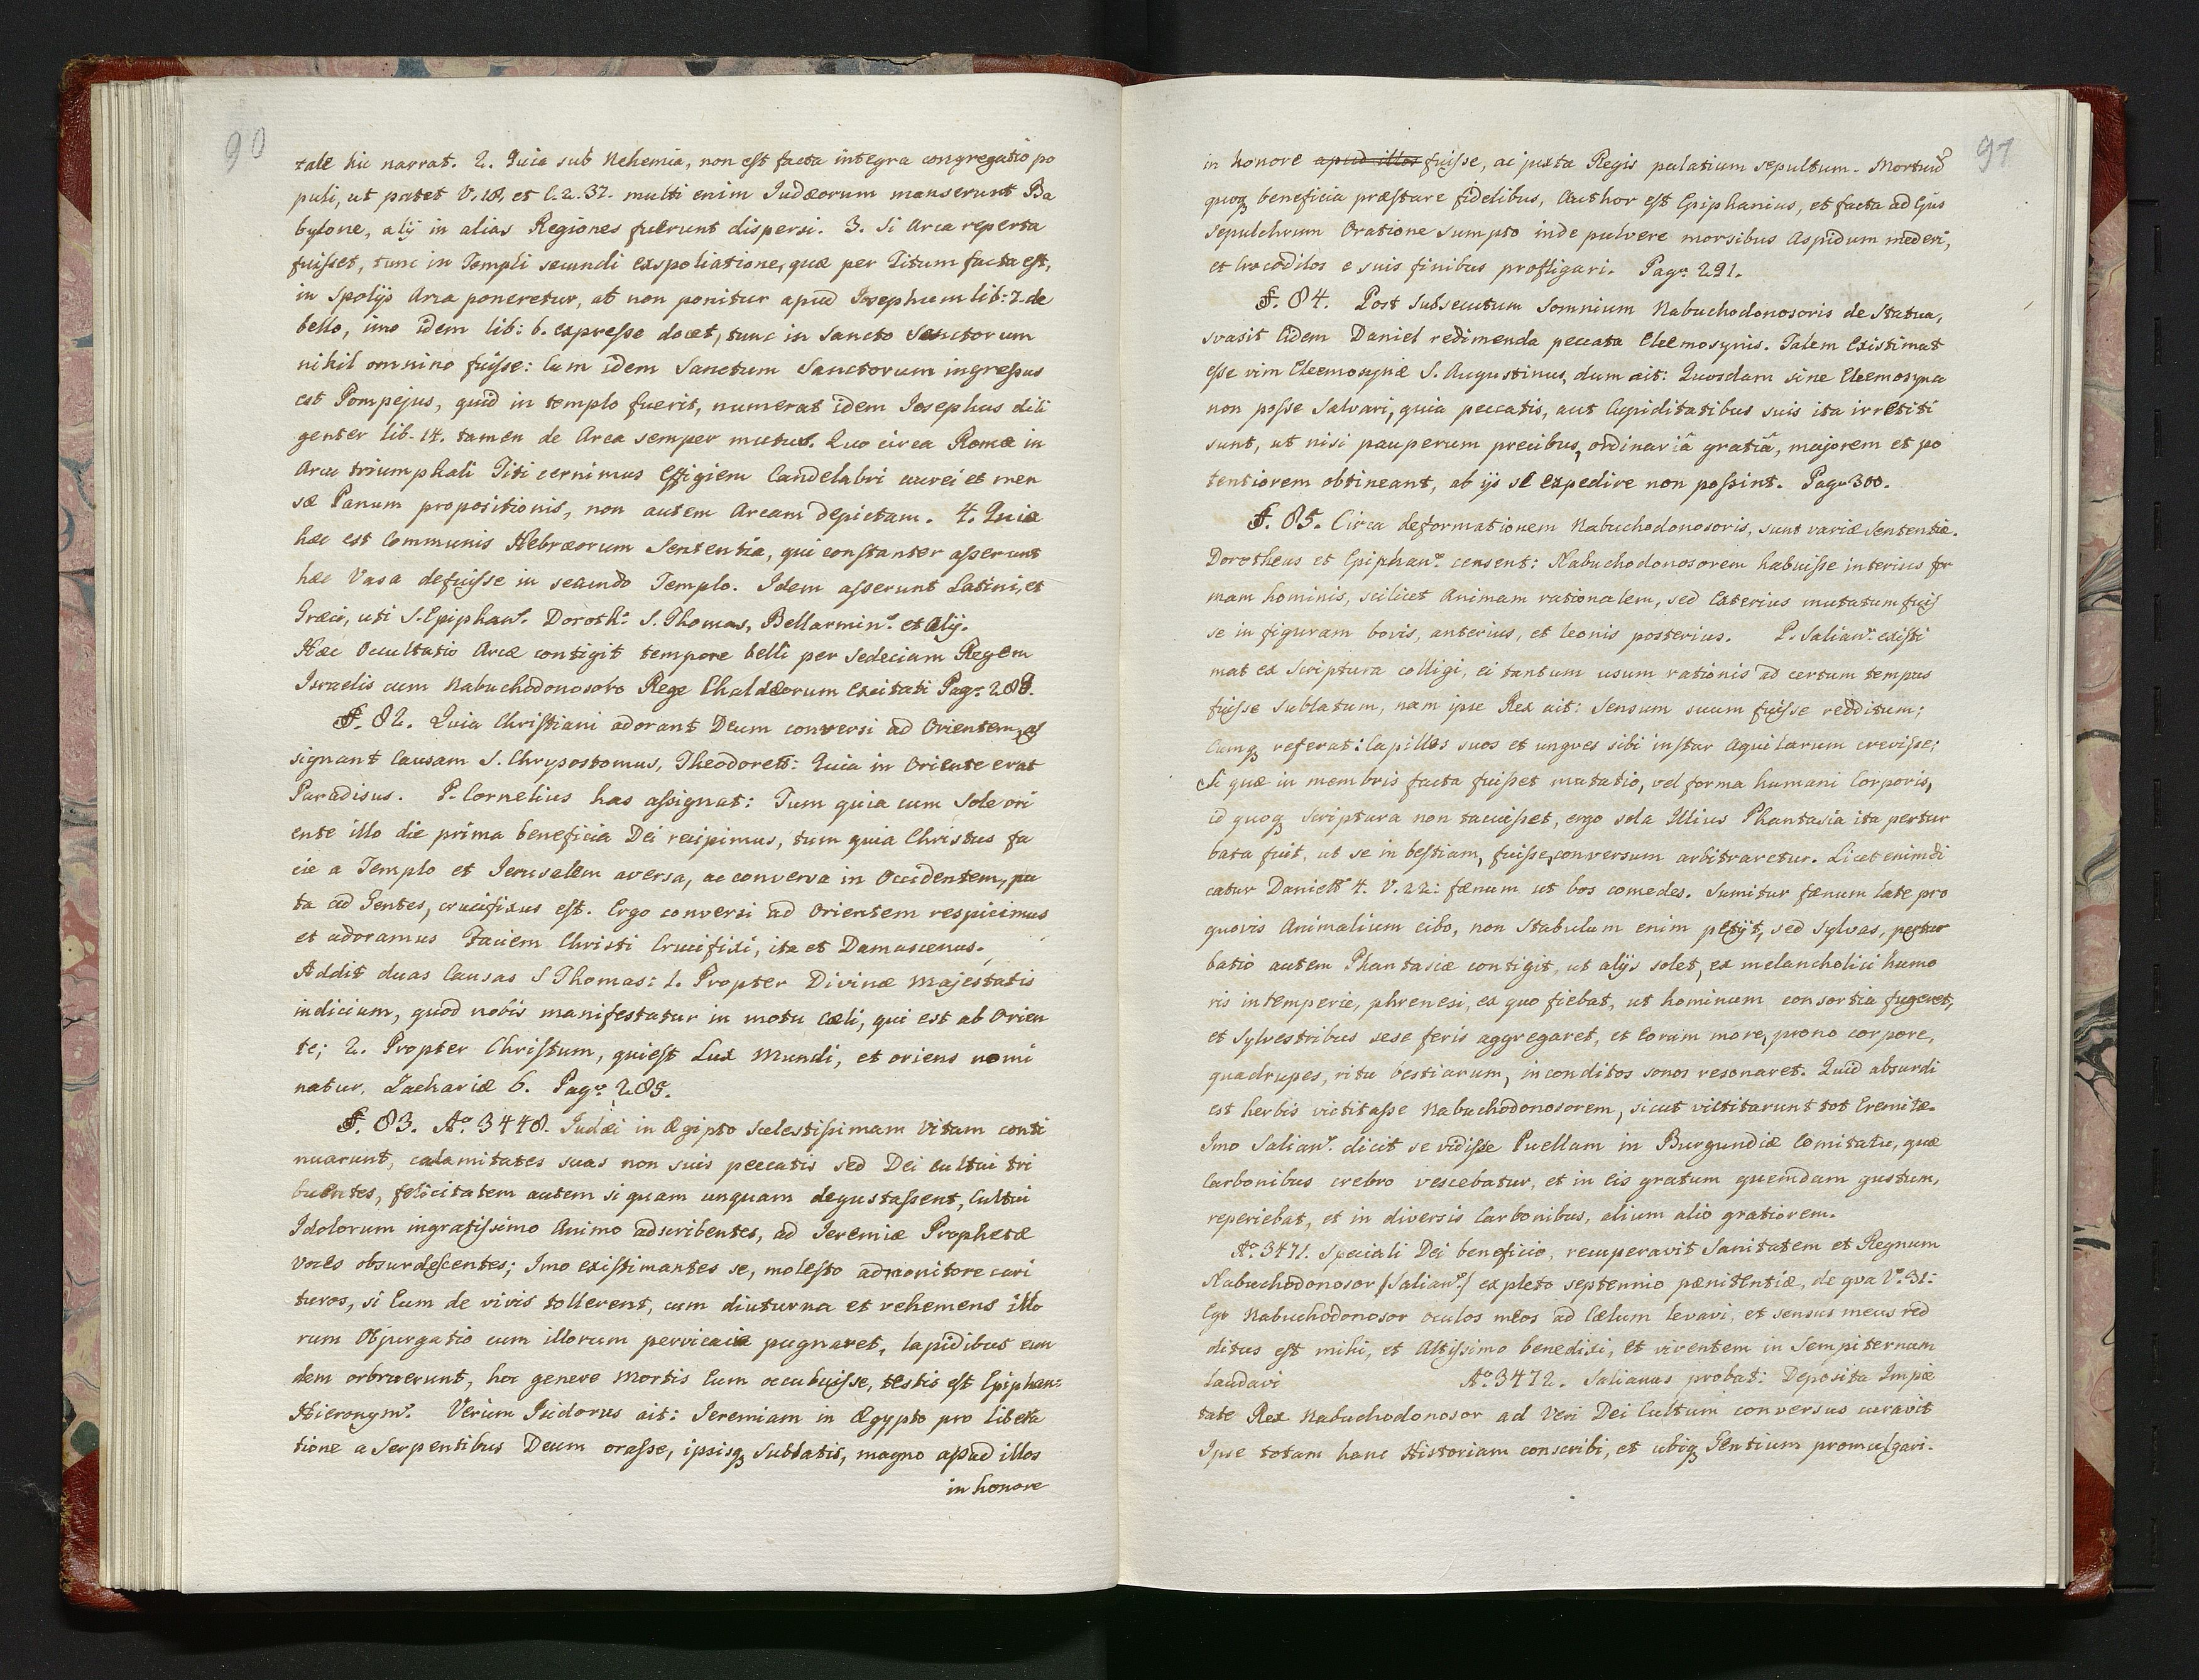 90
tale hic narrat. 2. Quia sub Nehemia, non est facta integra congregatio po
puli, ut patet V. 18, et C. 2. 37. multi enim Judæorum manserunt Ba
bylone, alij in alias Regiones fuerunt dispersi. 3. Si Arca reperta
fuisset, tunc in Templi secundi exspoliatione, quæ per Titum facta est,
in Spolijs Arca poneretur, at non ponitur apud Josephum lib: 7. de
bello, imo idem lib: 6. expresse docet, tunc in Sancto Sanctorum
nihil omnino fuisse: Cum idem Sanctum Sanctorum ingressus
est Pompejus, quid in templo fuerit, numerat idem Josephus dili
genter lib. 14. tamen de Arca semper mutus. Quo circa Romæ in
Arcu triumphali Titi cernimus Effigiem Candelabri aurei et men
sæ Panum propositionis, non autem Arcam depictam. 4. Quia
hæc est Communis Hebræorum Sententia, qui constanter asserunt
hæc Vasa defuisse in secundo Templo. Idem asserunt Latini, et
Græci, uti S. Epiphan. Doroth: S. Thomas, Bellarmin. et Alij.
Hæc Occultatio Arcæ contigit tempore belli per Sedeciam Regem
Israelis cum Nabuchodonosoro Rege Chaldæorum excitati Pag. 288.
§. 82. Quia Christiani adorant Deum conversi ad Orientem, as
signant Causam S. Chrysostomus, Theodoret: Quia in Oriente erat
Paradisus. P. Cornelius has assignat: Tum quia cum Sole ori
ente illo die prima beneficia Dei recipimus, tum quia Christus fa
cie a Templo et Jerusalem aversa, ac conversa in Occidentem, pu
ta ad Gentes, crucifixus est. Ergo conversi ad Orientem respicimus
et adoramus Faciem Christi Crucifixi, ita et Damascenus.
Addit duas Causas S Thomas: 1. Propter Divinæ Majestatis
indicium, quod nobis manifestatur in motu Cæli, qui est ab Orien
te; 2. Propter Christum, qui est Lux Mundi, et oriens nomi
natur, Zachariæ 6. Pag. 285.
§. 83. Ao. 3448. Judæi in Ægipto scelestissimam Vitam conti
nuarunt, calamitates suas non suis peccatis sed Dei cultui tri
buentes, felicitatem autem si quam unquam degustassent, Cultui
Idolorum ingratissimo Animo adscribentes, ad Jeremiæ Prophetæ
voces obsurdescentes; Imo existimantes se, molesto admonitore cari
turos, si Eum de vivis tollerent, cum diuturna et vehemens illo
rum Objurgatio cum illorum pervicacia pugnaret, lapidibus eun
dem orbruerunt, hoc genere Mortis Eum occubuisse, testis est Epiphan:
Hieronym. Verum Isidorus ait: Jeremiam in Ægypto pro libera
tione a Serpentibus Deum orasse, ipsisq, sublatis, magno apud illos
in honore
91
in honore apud illos fuisse, ac juxta Regis palatium sepultum. Mortuu
quoq beneficia præstare fidelibus, Author est Epiphanius, et facta ad Ejus
Sepulchrum Oratione sumpto inde pulvere morsibus Aspidum mederi,
et Crocodilos e suis finibus profligari. Pag. 291.
§. 84. Post subsecutum Somnium Nabuchodonosoris de Statua,
svasit Eidem Daniel redimenda peccata Eleemosynis. Talem Existimat
esse vim Eleemosynæ S. Augustinus, dum ait: Quosdam sine Eleemosyna
non posse Salvari, quia peccatis, aut Cupiditatibus suis ita irretiti
sunt, ut nisi pauperum precibus, ordinariâ gratiâ, majorem et po
tentiorem obtineant, ab ijs se expedire non possint. Pag. 300.
§. 85. Circa deformationem Nabuchodonosoris, sunt variæ Sententiæ.
Dorotheus et Epiphan. censent: Nabuchodonosorem habuisse interius for
mam hominis, scilicet Animam rationalem, sed Exterius mutatum fuis
se in figuram bovis, anterius, et leonis posterius. P. Salian. existi
mat ex Scriptura colligi, ei tantum usum rationis ad certum tempus
fuisse sublatum, nam ipse Rex ait: Sensum suum fuisse redditum;
Cumq referat: Capillos suos et ungves sibi instar Aquilarum crevisse;
Si quæ in membris facta fuisset mutatio, vel forma humani Corporis,
id quoq Scriptura non tacuisset, ergo sola Illius Phantasia ita pertur
bata fuit, ut se in bestiam, fuisse, conversum arbitraretur. Licet enim di
catur Daniel 4. V. 22: fænum ut bos comedes. Sumitur fænum late pro
quovis Animalium cibo, non Stabulum enim petijt, sed sylvas, pertur
batio autem Phantasiæ contigit, ut alijs solet, ex melancholici humo
ris intemperie, phrenesi, ex quo fiebat, ut hominum consortia fugeret,
et Sylvestribus sese feris aggregaret, et Eorum more, prono corpore,
quadrupes, ritu bestiarum, inconditos sonos resonaret. Quid absurdi
est herbis victitasse Nabuchodonosorem, sicut victitarunt tot Eremitæ.
Imo Salian. dicit se vidisse Puellam in Burgundiæ Comitatu, quæ
Carbonibus crebro vescebatur, et in Eis gratum quemdam gustum,
reperiebat, et in diversis Carbonibus, alium alio gratiorem.
Ao. 3471. Speciali Dei beneficio, recuperavit Sanitatem et Regnum
Nabuchodonosor (Salian.) expleto septennio pænitentiæ, de qva V. 31:
Ego Nabuchodonosor oculos meos ad Cælum levavi, et sensus meus red
ditus est mihi, et Altissimo benedixi, et viventem in Sempiternum
Laudavi Ao. 3472. Salianus probat: Deposita Impie
tate Rex Nabuchodonosor ad Veri Dei Cultum conversus curavit
Ipse totam hanc Historiam conscribi, et ubiq Gentium promulgari.